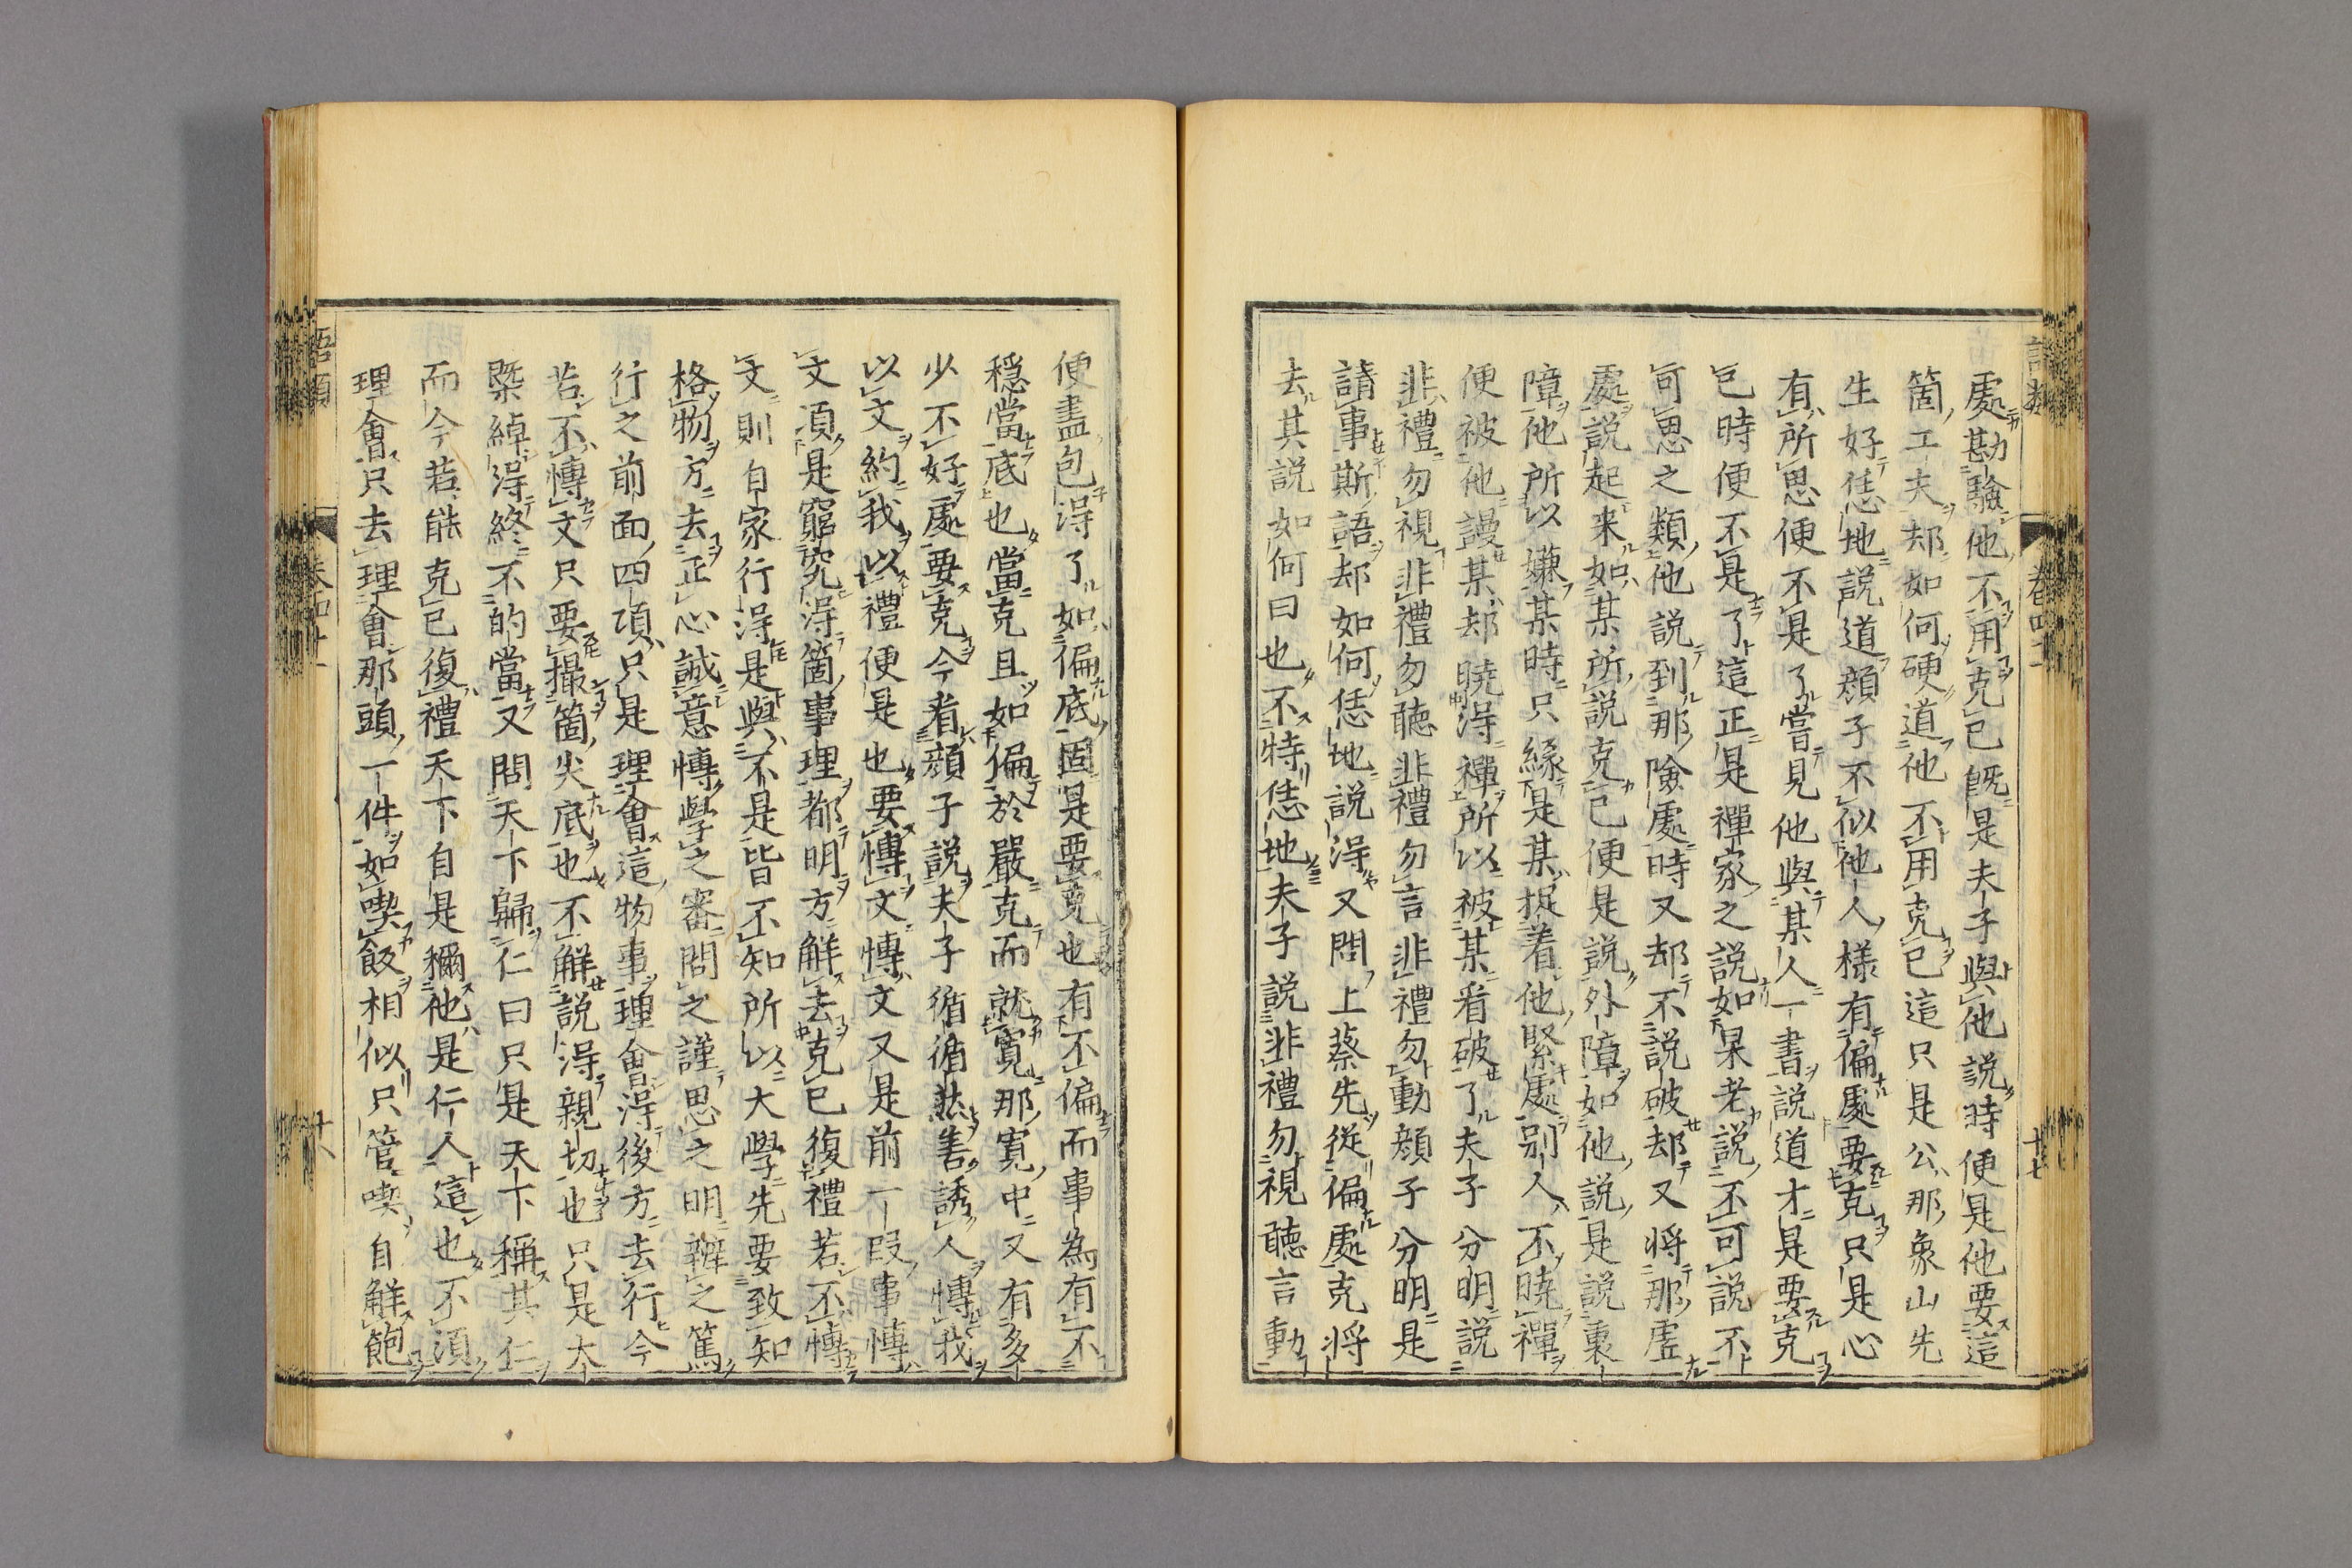 處勘驗他不用克己既是夫子與他說時便是他要這
箇工夫却如何硬道他不用克己這只是公那象山先
生好恁地說道顔子不似他人樣有偏處要克只是心
有所思便不是了嘗見他與某人一書說道才是要克
已時便不是了這正是禪家之說如杲老說不可說不
可思之類他說到那險處時又却不說破却又将那虚
處說起来如某所說克己便是說外障如他說是說裏
障他所以嫌某時只緣是某捉着他緊處别人不曉禪
便被他謾某却曉得禪所以被某看破了夫子分明說
非禮勿視非禮勿聽非禮勿言非禮勿動顔子分明是
請事斯語却如何恁地說得又問上蔡先從偏處克将
去其說如何曰也不特恁地夫子說非禮勿視聽言動
便盡包得了如偏底固是要克也有不偏而事為有不
穩當底也當克且如偏於嚴克而就寛那寛中又有多
少不好處要克今看顔子說夫子循循然善誘人愽我
以文約我以禮便是也要愽文愽文又是前一段事愽
文湏是窮究得箇事理都明方解去克己復禮若不愽
文則自家行得是與不是皆不知所以大學先要致知
格物方去正心誠意愽學之審問之謹思之明辨之篤
行之前面四項只是理會這物事理會得後方去行今
若不愽文只要撮箇尖底也不解說得親切也只是大
槩綽得終不的當又問天下歸仁曰只是天下稱其仁
而今若能克己復禮天下自是稱他是仁人這也不湏
理會只去理會那頭一件如喫飯相似只管喫自解飽
語類 卷四十一 十七
語類 卷四十一 十八